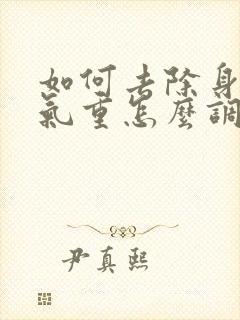 如何去除身
氣重怎麼調
尹真熙